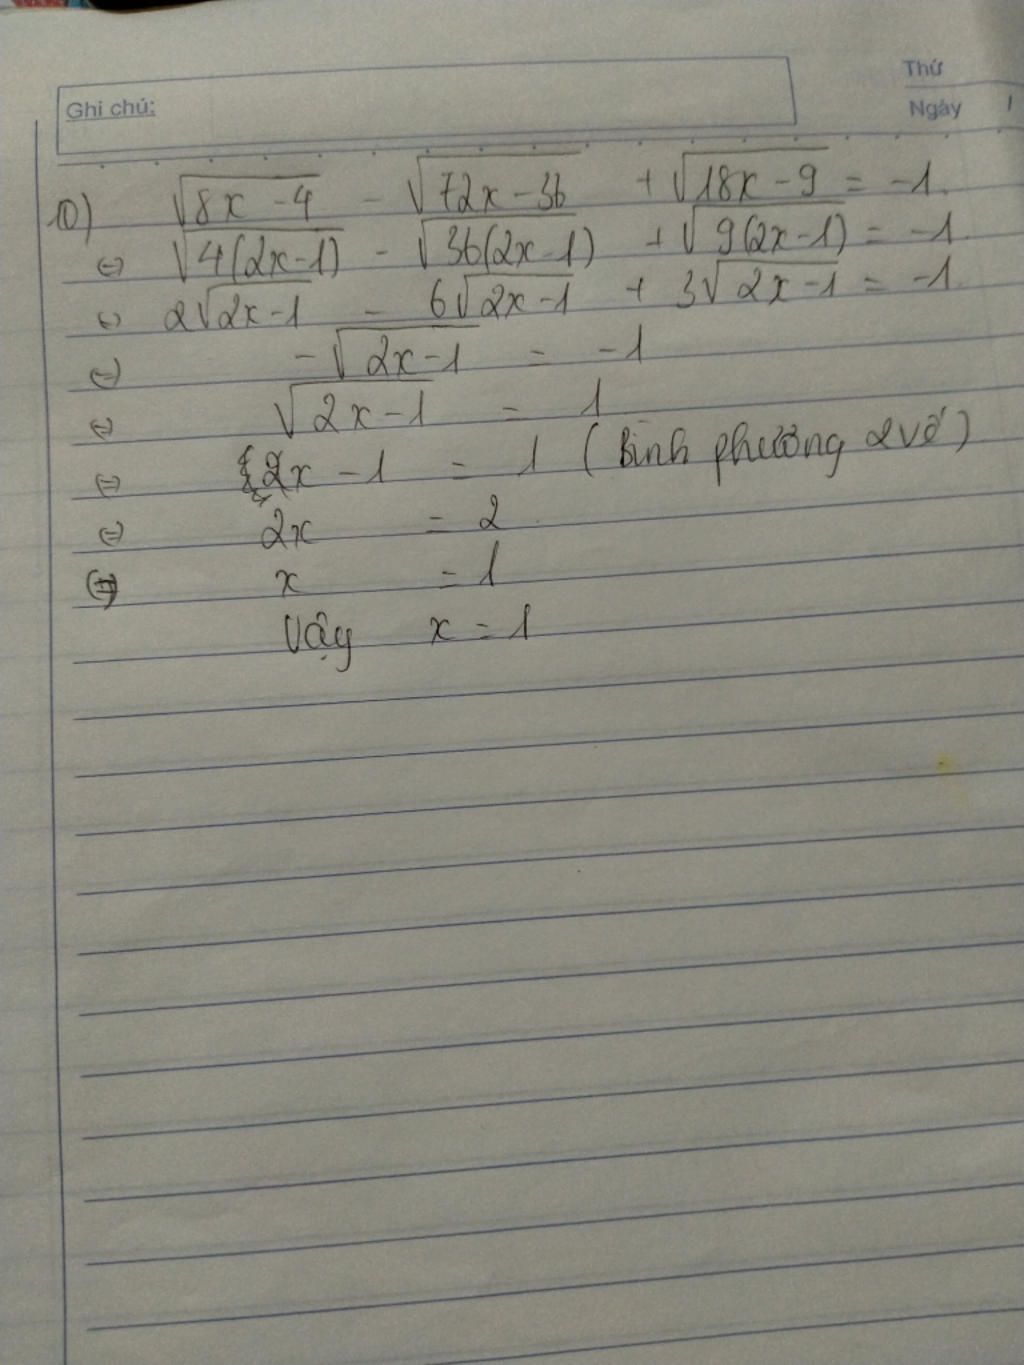 Thứ
Ghi chú:
Ngày
10) √(8x-4) - √(72x-36) + √(18x-9) = -1.
(=) √(4(2x-1)) - √(36(2x-1)) + √(9(2x-1)) = -1
(=) 2√(2x-1) - 6√(2x-1) + 3√(2x-1) = -1.
(=) -√(2x-1) = -1
(=) √(2x-1) = 1
(=) 2x-1 = 1 (Bình phương 2 vế)
(=) 2x = 2
(=) x = 1
Vậy x = 1